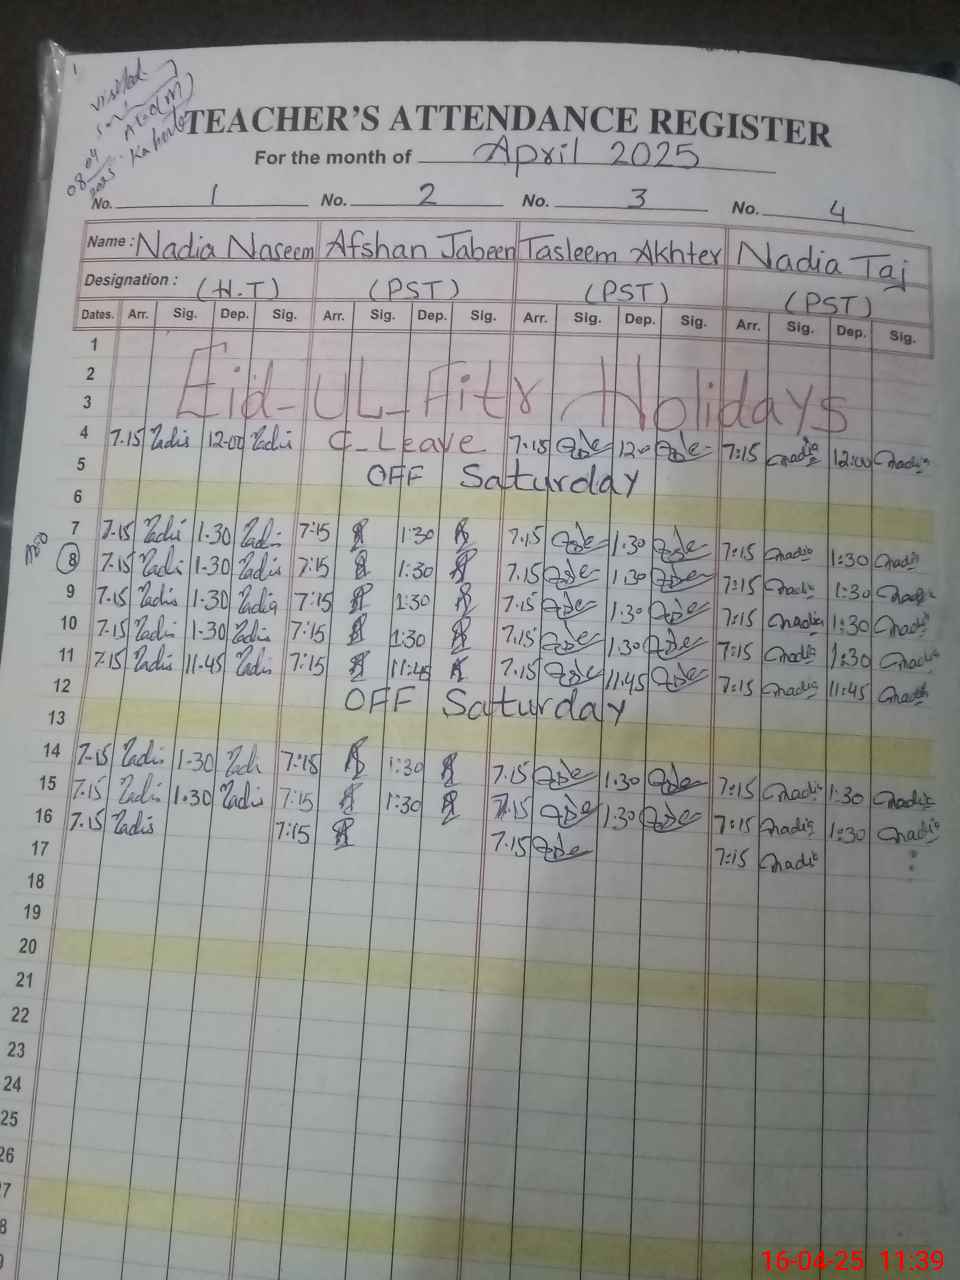 visited
AEO(M)
Kahuta
08.04.2025
TEACHER'S ATTENDANCE REGISTER
For the month of April 2025
No. 1 No. 2 No. 3 No. 4
Name : Nadia Naseem Afshan Jabeen Tasleem Akhter Nadia Taj
Designation : (H.T) (PST) (PST) (PST)
Dates. Arr. Sig. Dep. Sig. Arr. Sig. Dep. Sig. Arr. Sig. Dep. Sig. Arr. Sig. Dep. Sig.
1
2 Eid-UL-Fitr Holidays
3
4 7.15 Nadia 12-00 Nadia C-Leave 7.15 12.00 7:15 Nadia 12:00 Nadia
5 OFF Saturday
6
7 7.15 Nadia 1.30 Nadia 7:15 1:30 7.15 1.30 7:15 Nadia 1:30 Nadia
AEO 8 7.15 Nadia 1-30 Nadia 7:15 1:30 7.15 1.30 7:15 Nadia 1:30 Nadia
9 7.15 Nadia 1-30 Nadia 7:15 1:30 7.15 1.30 7:15 Nadia 1:30 Nadia
10 7.15 Nadia 1-30 Nadia 7:15 1:30 7.15 1.30 7:15 Nadia 1:30 Nadia
11 7.15 Nadia 11.45 Nadia 7:15 11:45 7.15 11.45 7:15 Nadia 11:45 Nadia
12 OFF Saturday
13
14 7-15 Nadia 1-30 Nadia 7:15 1:30 7.15 1.30 7:15 Nadia 1:30 Nadia
15 7.15 Nadia 1.30 Nadia 7:15 1:30 7.15 1.30 7:15 Nadia 1:30 Nadia
16 7.15 Nadia 7:15 7.15 7:15 Nadia
17
18
19
20
21
22
23
24
25
26
7
8
9
16-04-25 11:39